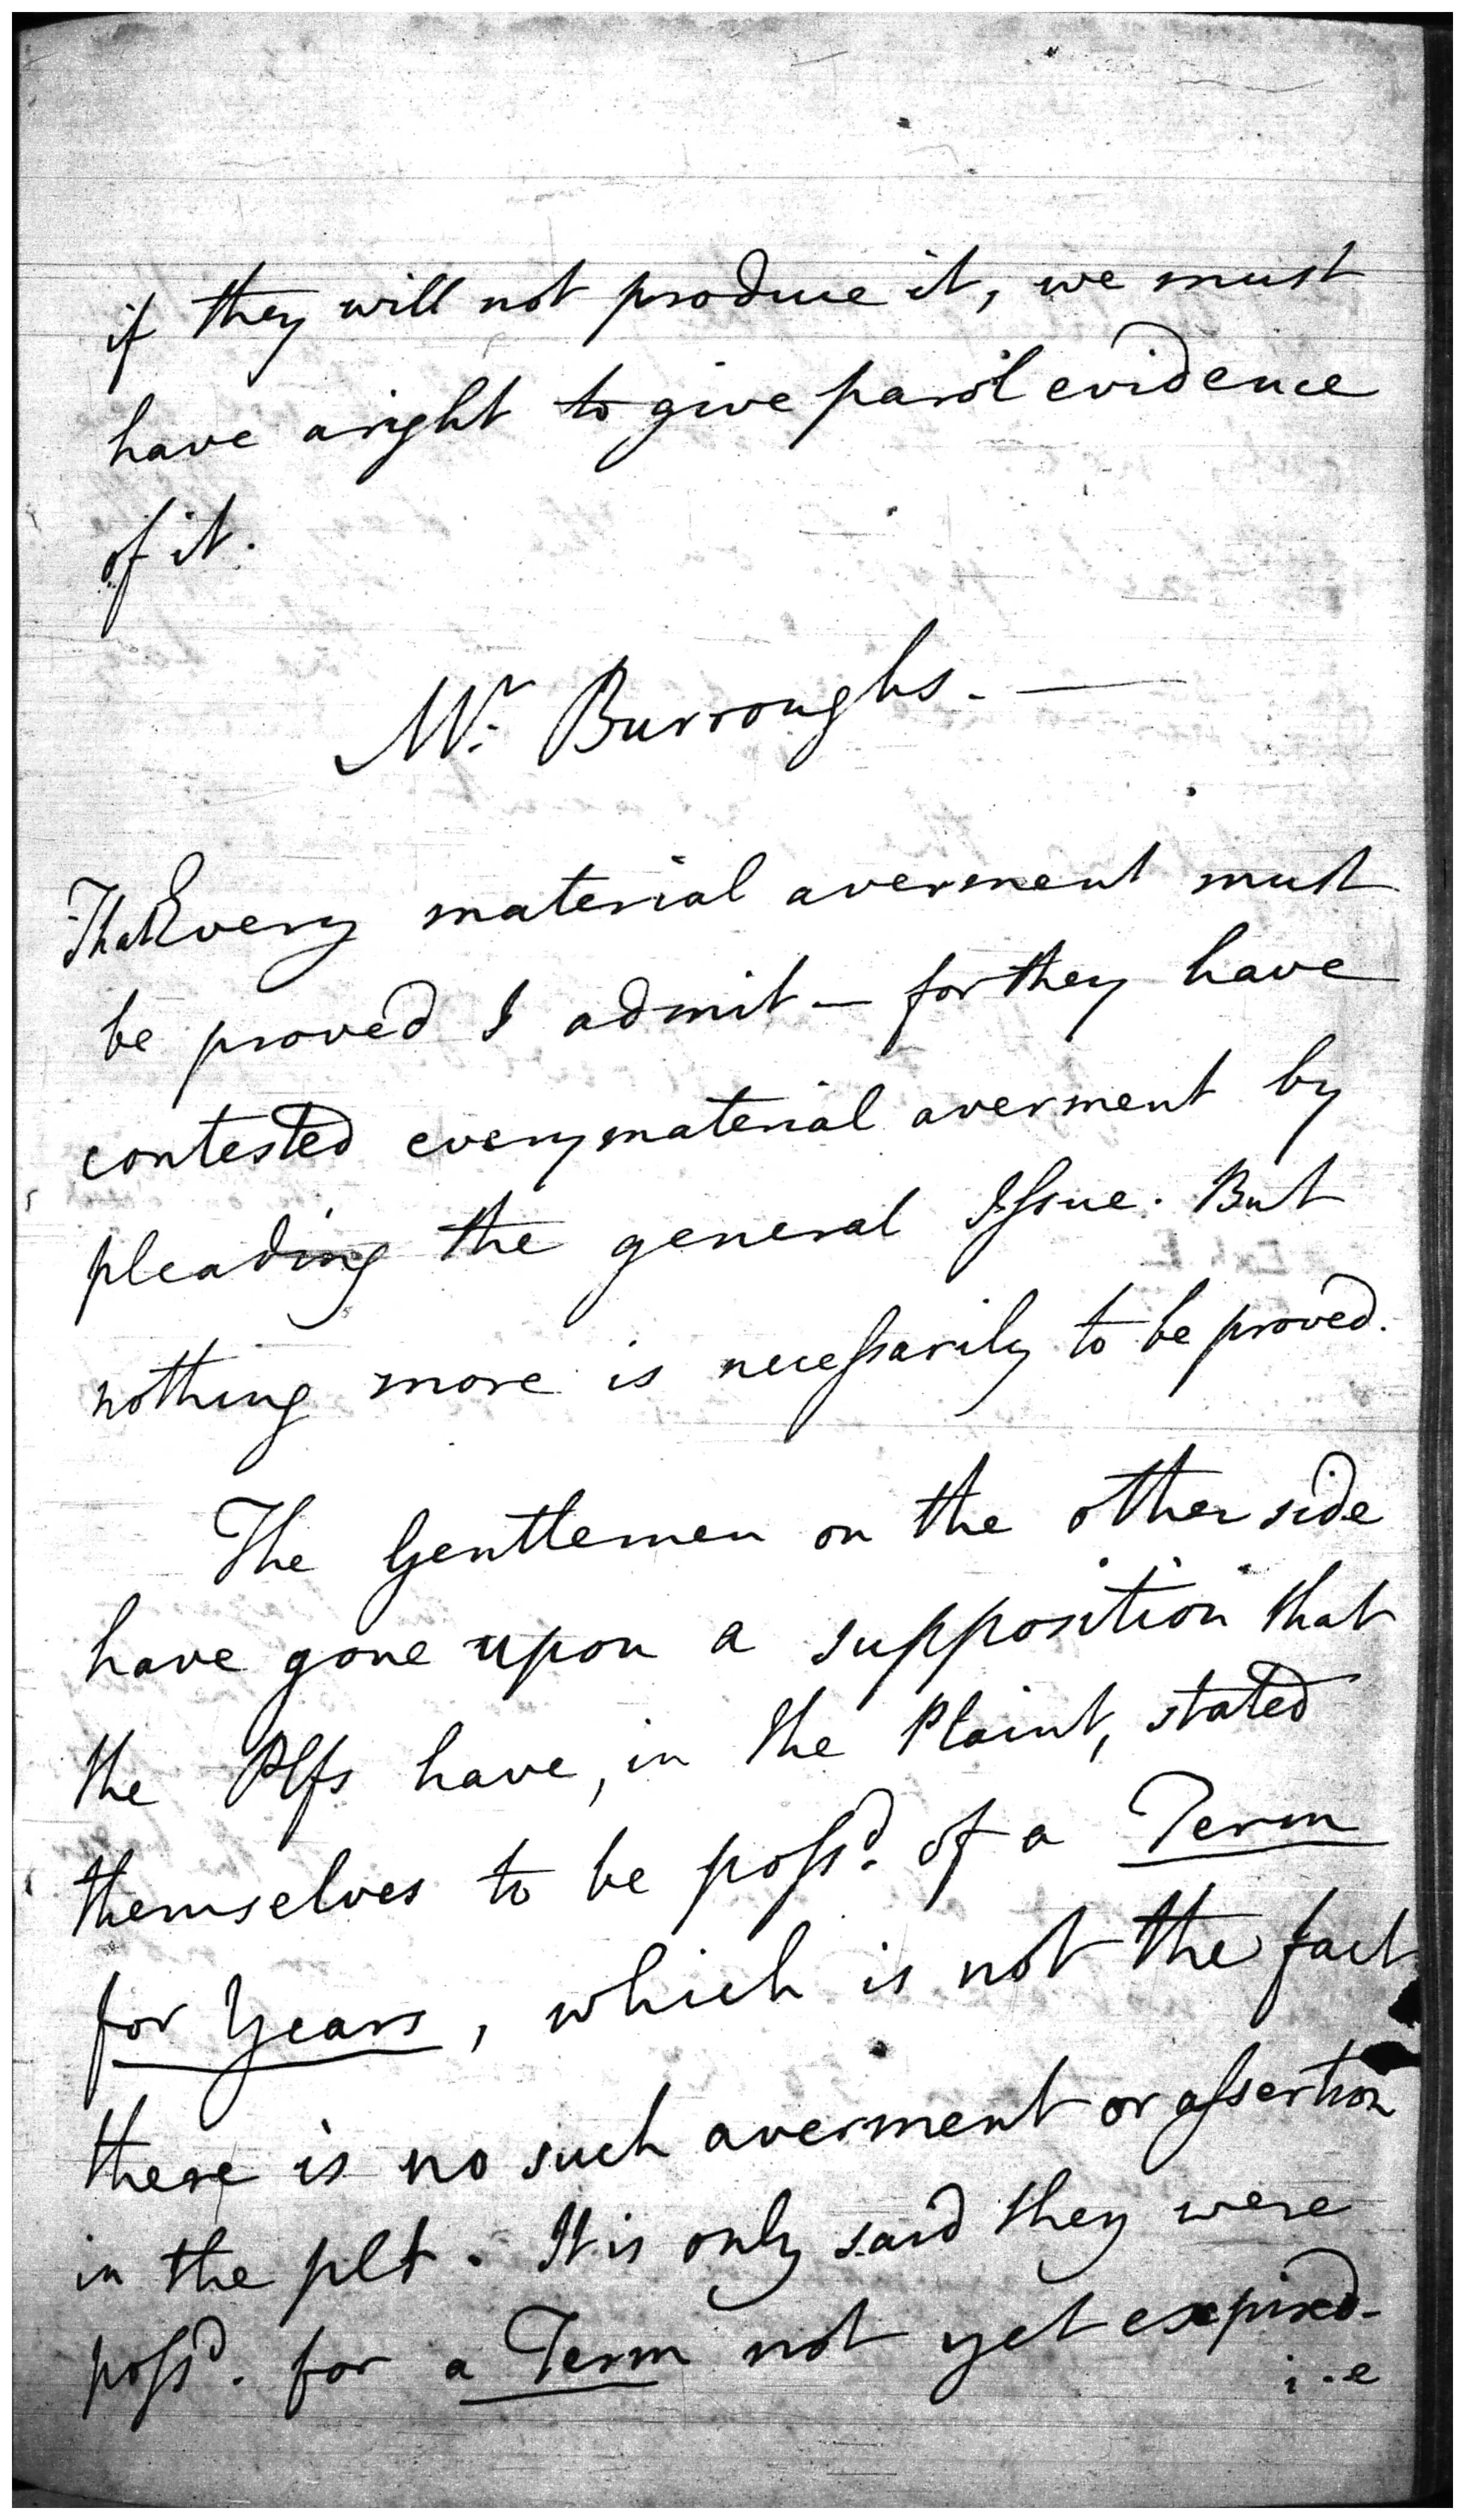 if they will not produce it, we must
have a right to give parol evidence
of it.
Mr. Burroughs. —
That Every material averment must
be proved I admit — for they have
contested every material averment by
pleading the general Issue. But
nothing more is necessarily to be proved.
The Gentlemen on the other side
have gone upon a supposition that
the Plfs have, in the Plaint, stated
themselves to be possd. of a Term
for Years, which is not the fact
there is no such averment or assertion
in the plt. It is only said they were
possd. for a Term not yet expired-
i.e